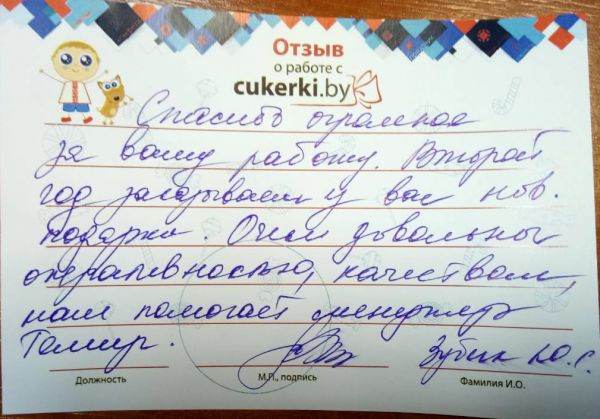 Отзыв
о работе с
cukerki.by
Спасибо огромное
за вашу работу. Второй
год заказываем у вас нов.
подарки. Очень довольны
оперативностью, качеством,
нам помогает менеджер
Тамир.
Зубик Ю.С.
Должность
М.П., подпись
Фамилия И.О.